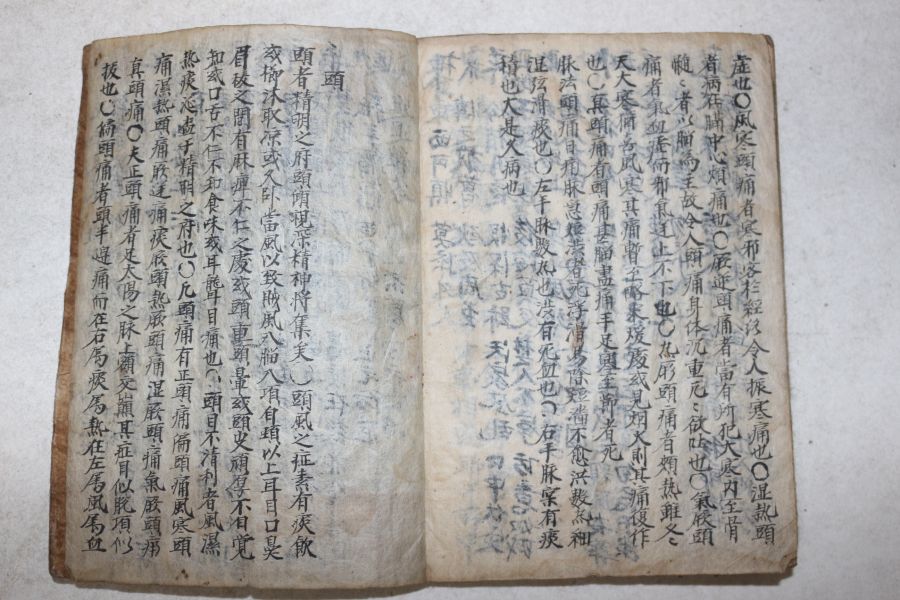 虛也○風寒頭痛者寒邪客於經絡令人振寒痛也○湿熱頭
者病在腦中心煩痛也○厥逆頭痛者當有所犯大寒內至骨
髓〻者以腦爲主故令人頭痛身体沉重厄〻欲吐也○氣厥頭
痛者氣血虛而邪氣逆上不下也○熱厥頭痛者頰熱雖冬
天大寒猶吉風寒其痛暫止略来煖處或見烟火則其痛復作
也○真頭痛有頭痛甚腦盡痛手足寒至節者死
脉法頭痛目痛脉急短濇者死浮滑易除短濇不愈洪數熱細
湿弦滑痰也○左手脉數熱也濇有死血也○右手脉實有痰
積也大是久病也
頭
頭者精明之府頭傾視深精神將集矣○頭風之症素有痰飮
或櫛沐取凉或久卧當風以致賊風入腦入項自頸以上耳目口鼻
眉稜之間有麻痺不仁之處或頭重頭暈或頭皮頑厚不自覺
知或口舌不仁不知食味或耳聾目痛也○頭目不清利者風濕
熱痰壅于精明之府也○凡頭痛有正頭痛偏頭痛風寒頭
痛濕熱頭痛厥逆痛痰厥頭熱厥頭痛湿厥頭痛氣厥頭痛
真頭痛○夫正頭痛者足太陽之脉上額交巓其症目似脫項似
拔也○偏頭痛者頭半邊痛而在右屬痰屬熱在左屬風屬血